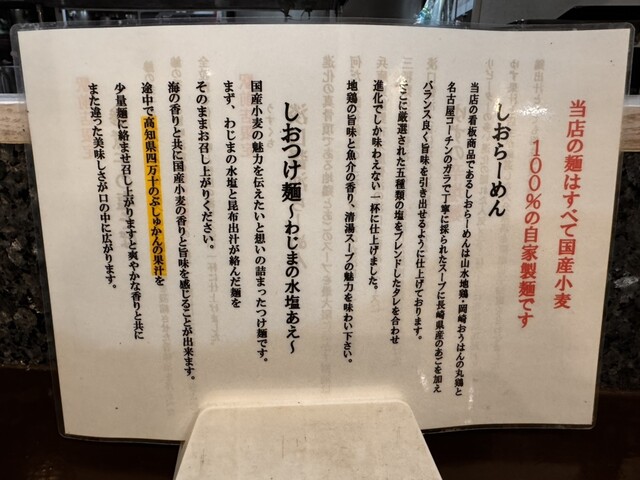 当店の麺はすべて国産小麦
100%の自家製麺です
しおらーめん
当店の看板商品であるしおらーめんは山水地鶏・岡崎おうはんの丸鶏と
名古屋コーチンのガラで丁寧に採られたスープに長崎県産のあごを加え
バランス良く旨味を引き出せるように仕上げております。
そこに厳選された五種類の塩をブレンドしたタレを合わせ
進化でしか味わえない一杯に仕上げました。
地鶏の旨味と魚介の香り、清湯スープの魅力を味わい下さい。
しおつけ麺〜わじまの水塩あえ〜
国産小麦の魅力を伝えたいと想いの詰まったつけ麺です。
まず、わじまの水塩と昆布出汁が絡んだ麺を
そのままお召し上がりください。
海の香りと共に国産小麦の香りと旨味を感じることが出来ます。
途中で高知県四万十のぶしゅかんの果汁を
少量麺に絡ませ召し上がりますと爽やかな香りと共に
また違った美味しさが口の中に広がります。